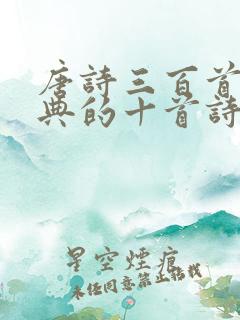 唐詩三百首
典的十首詩
星空煙痕
未經同意禁止轉載